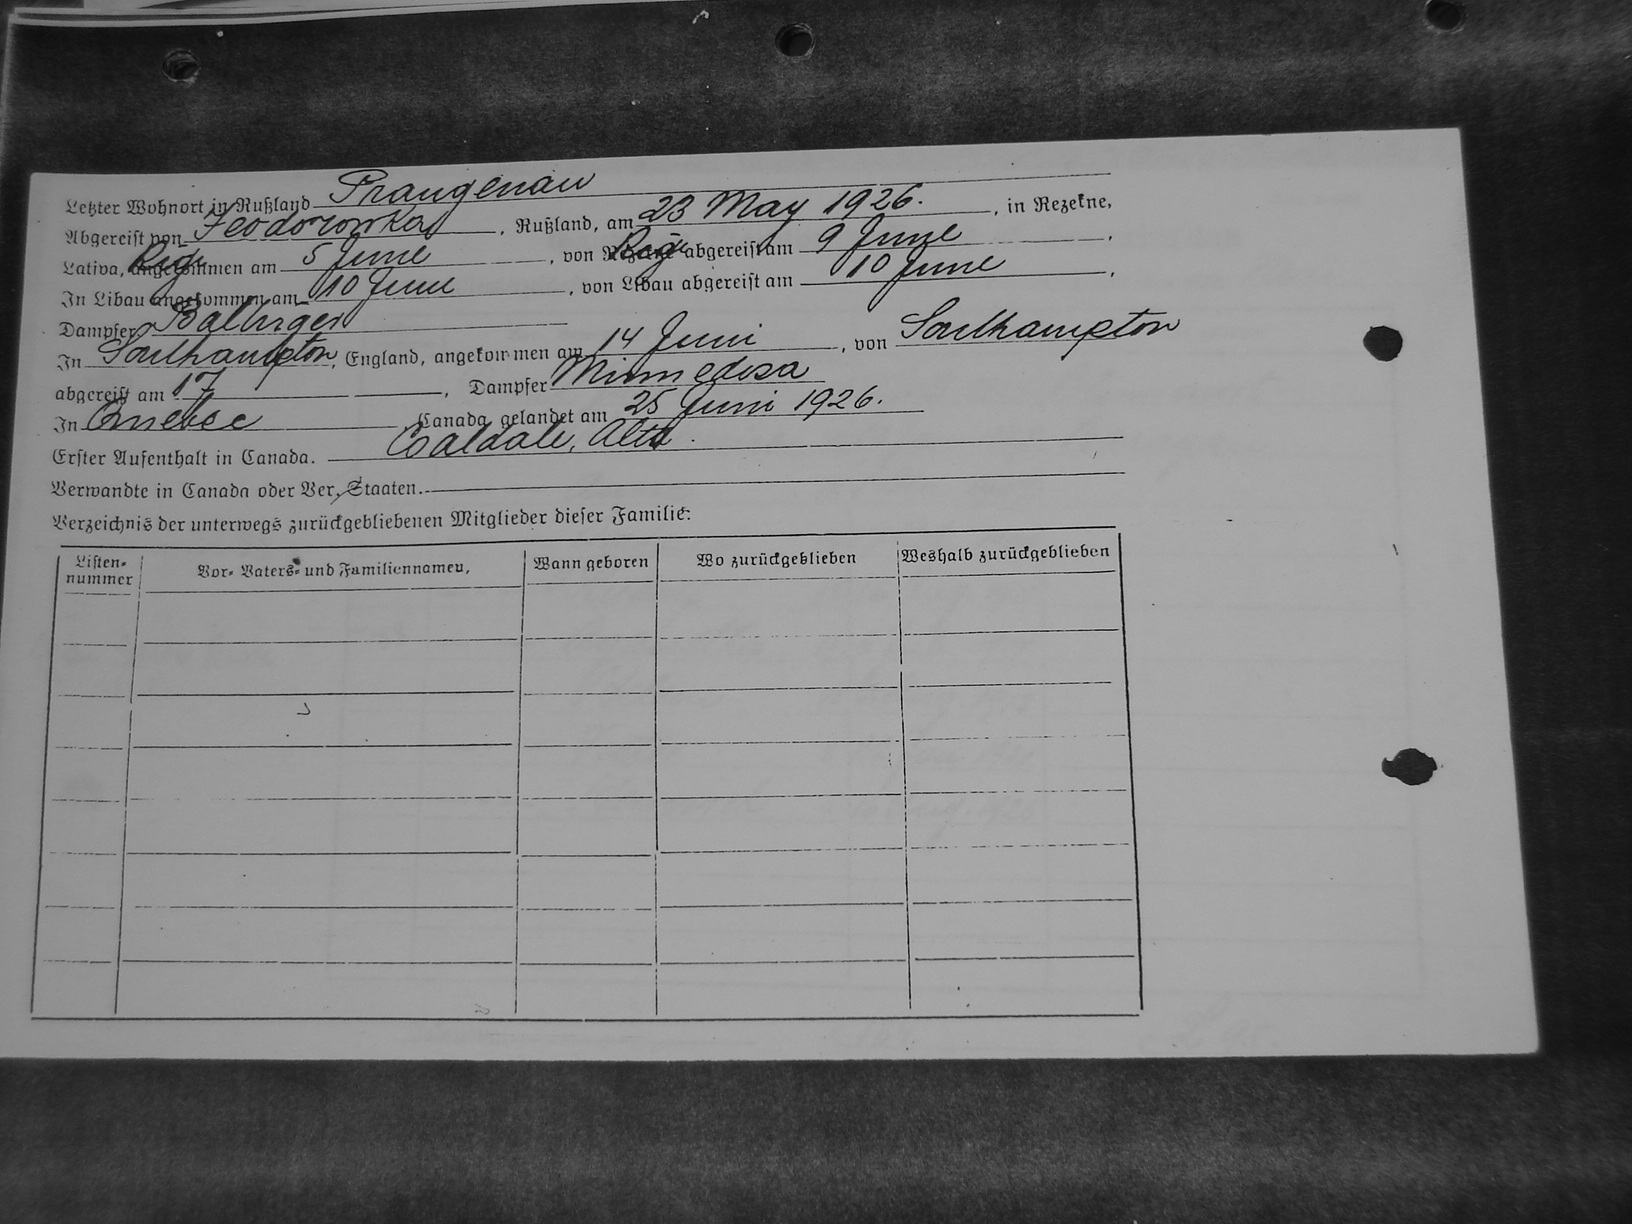 Letzter Wohnort in Rußland Prangenau
Abgereist von Feodorowka, Rußland, am 23 May 1926., in Rezekne,
Lativa, angekommen am 5 June, von abgereist am 9 June,
In Libau angekommen am 10 June, von Libau abgereist am 10 June,
Dampfer Baltriger
In Southampton, England, angekommen am 14 Juni, von Southampton
abgereist am 17, Dampfer Minnedosa
In Quebec, Canada, gelandet am 25 Juni 1926.
Erster Aufenthalt in Canada. Coaldale, Alta.
Verwandte in Canada oder Ver. Staaten.
Verzeichnis der unterwegs zurückgebliebenen Mitglieder dieser Familie:
Listen-nummer Vor- Vaters- und Familiennamen, Wann geboren Wo zurückgeblieben Weshalb zurückgeblieben